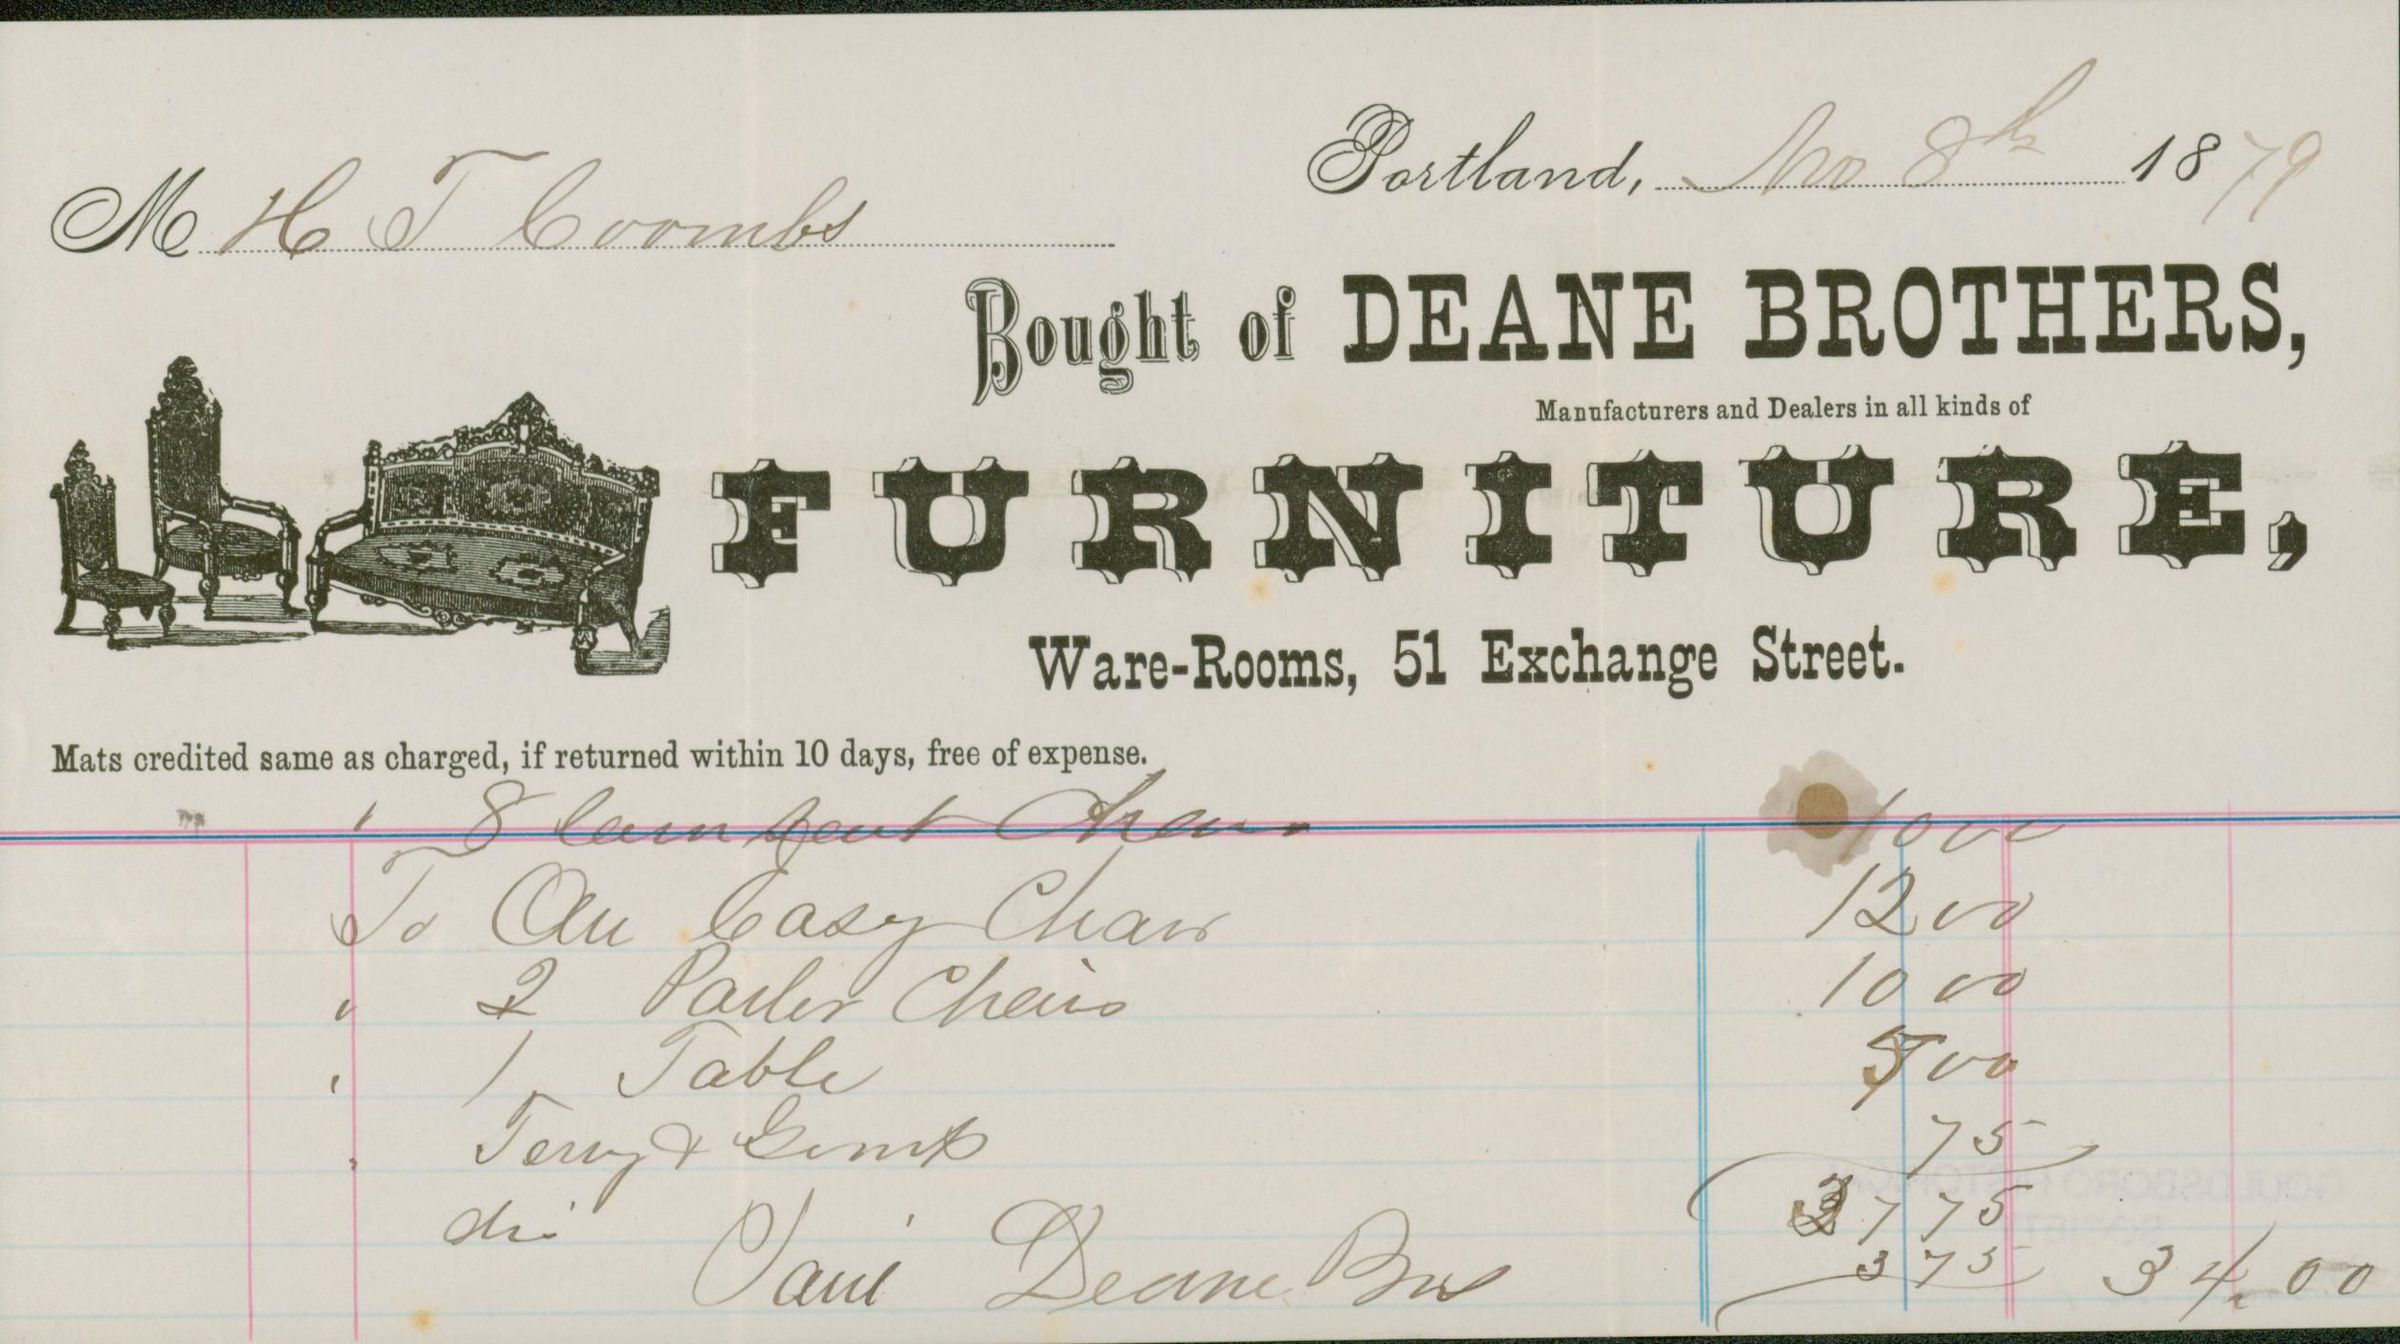 Portland, Nov 8th 1879
M H T Coombs
Bought of DEANE BROTHERS,
Manufacturers and Dealers in all kinds of
FURNITURE,
Ware-Rooms, 51 Exchange Street.
Mats credited same as charged, if returned within 10 days, free of expense.
" 8 Cain Seat Chairs 10 00
To An Easy Chair 12 00
" 2 Parler Chairs 10 00
" 1 Table 5 00
" Terry & Gimp 75
37 75
dis 3 75 34.00
Deane Bros